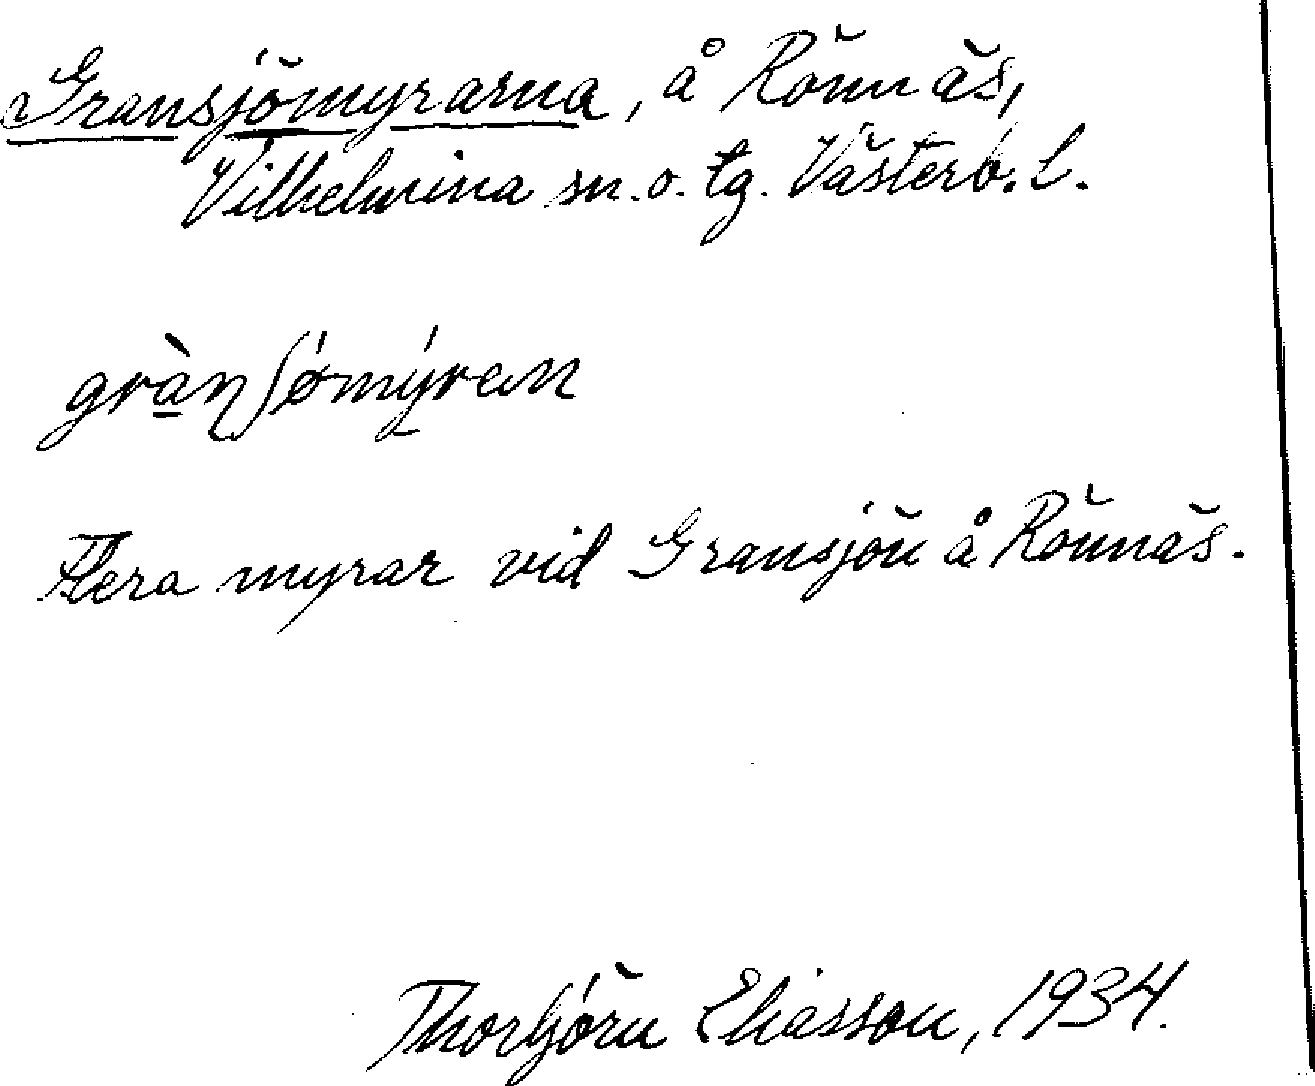 Gransjömyrarna, å Rönnäs,
Vilhelmina sn. o. tg. Västerb. l.
gràn̠ʃömýren
Flera myrar vid Gransjön å Rönnäs.
Thorbjörn Eliasson, 1934.